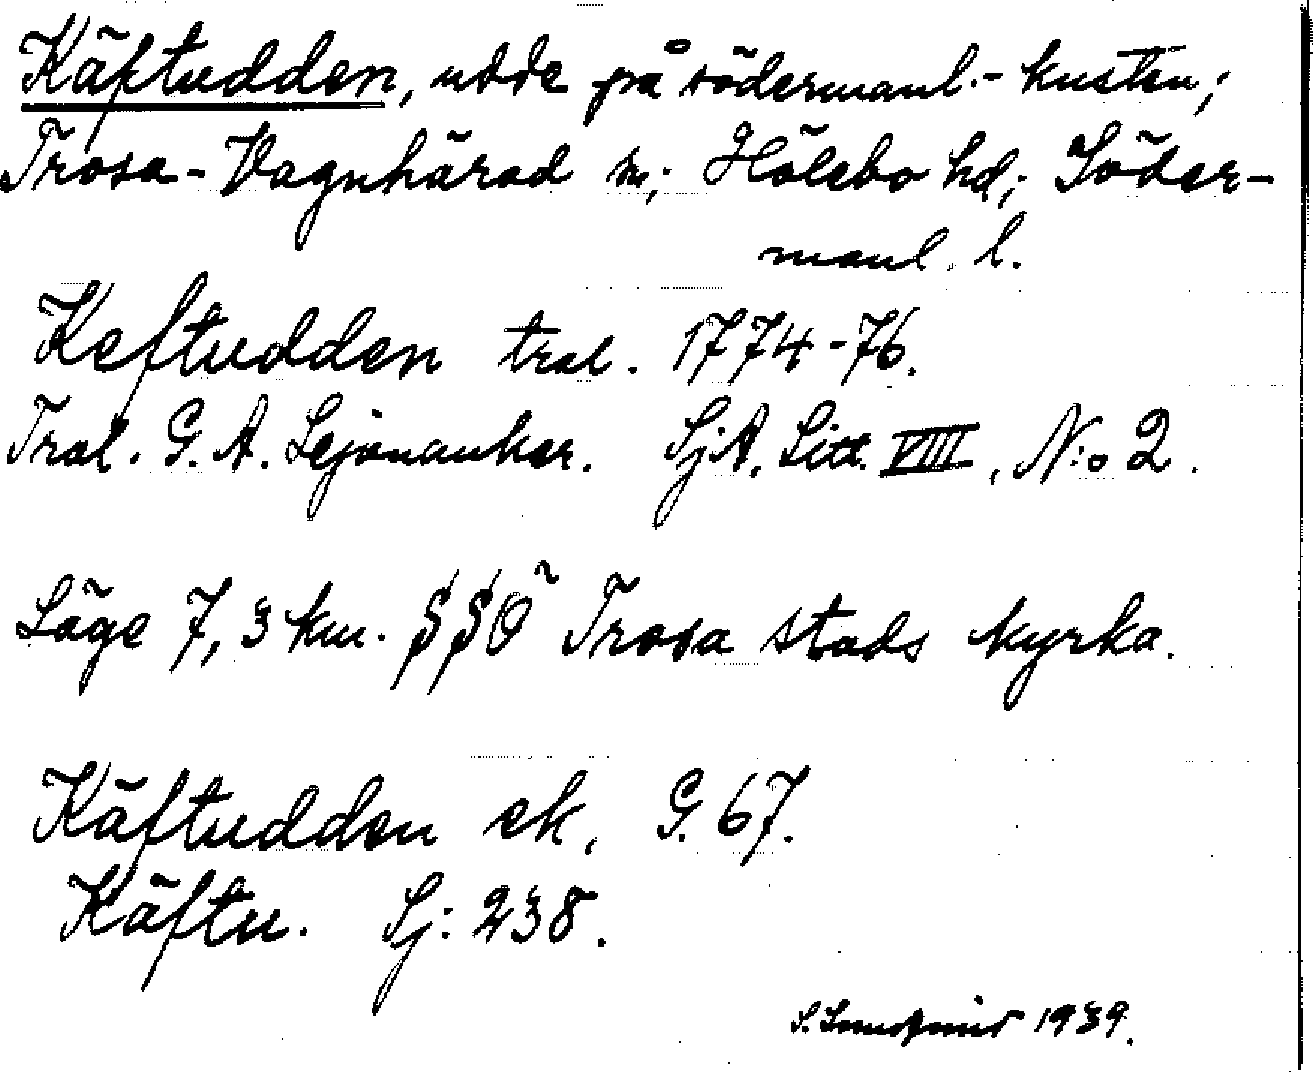 Käftudden, udde på södermanl.-kusten;
Trosa-Vagnhärad sn; Hölebo hd; Söder-
manl. l.
Keftudden tral. 1774-76.
Tral. G. A. Lejonanker. SjA. Litt. VIII, N:o 2.
Läge 7,3 km. SSÖ Trosa stads kyrka.
Käftudden ek. G. 67.
Käftu. Sj: 238.
S. 1939.